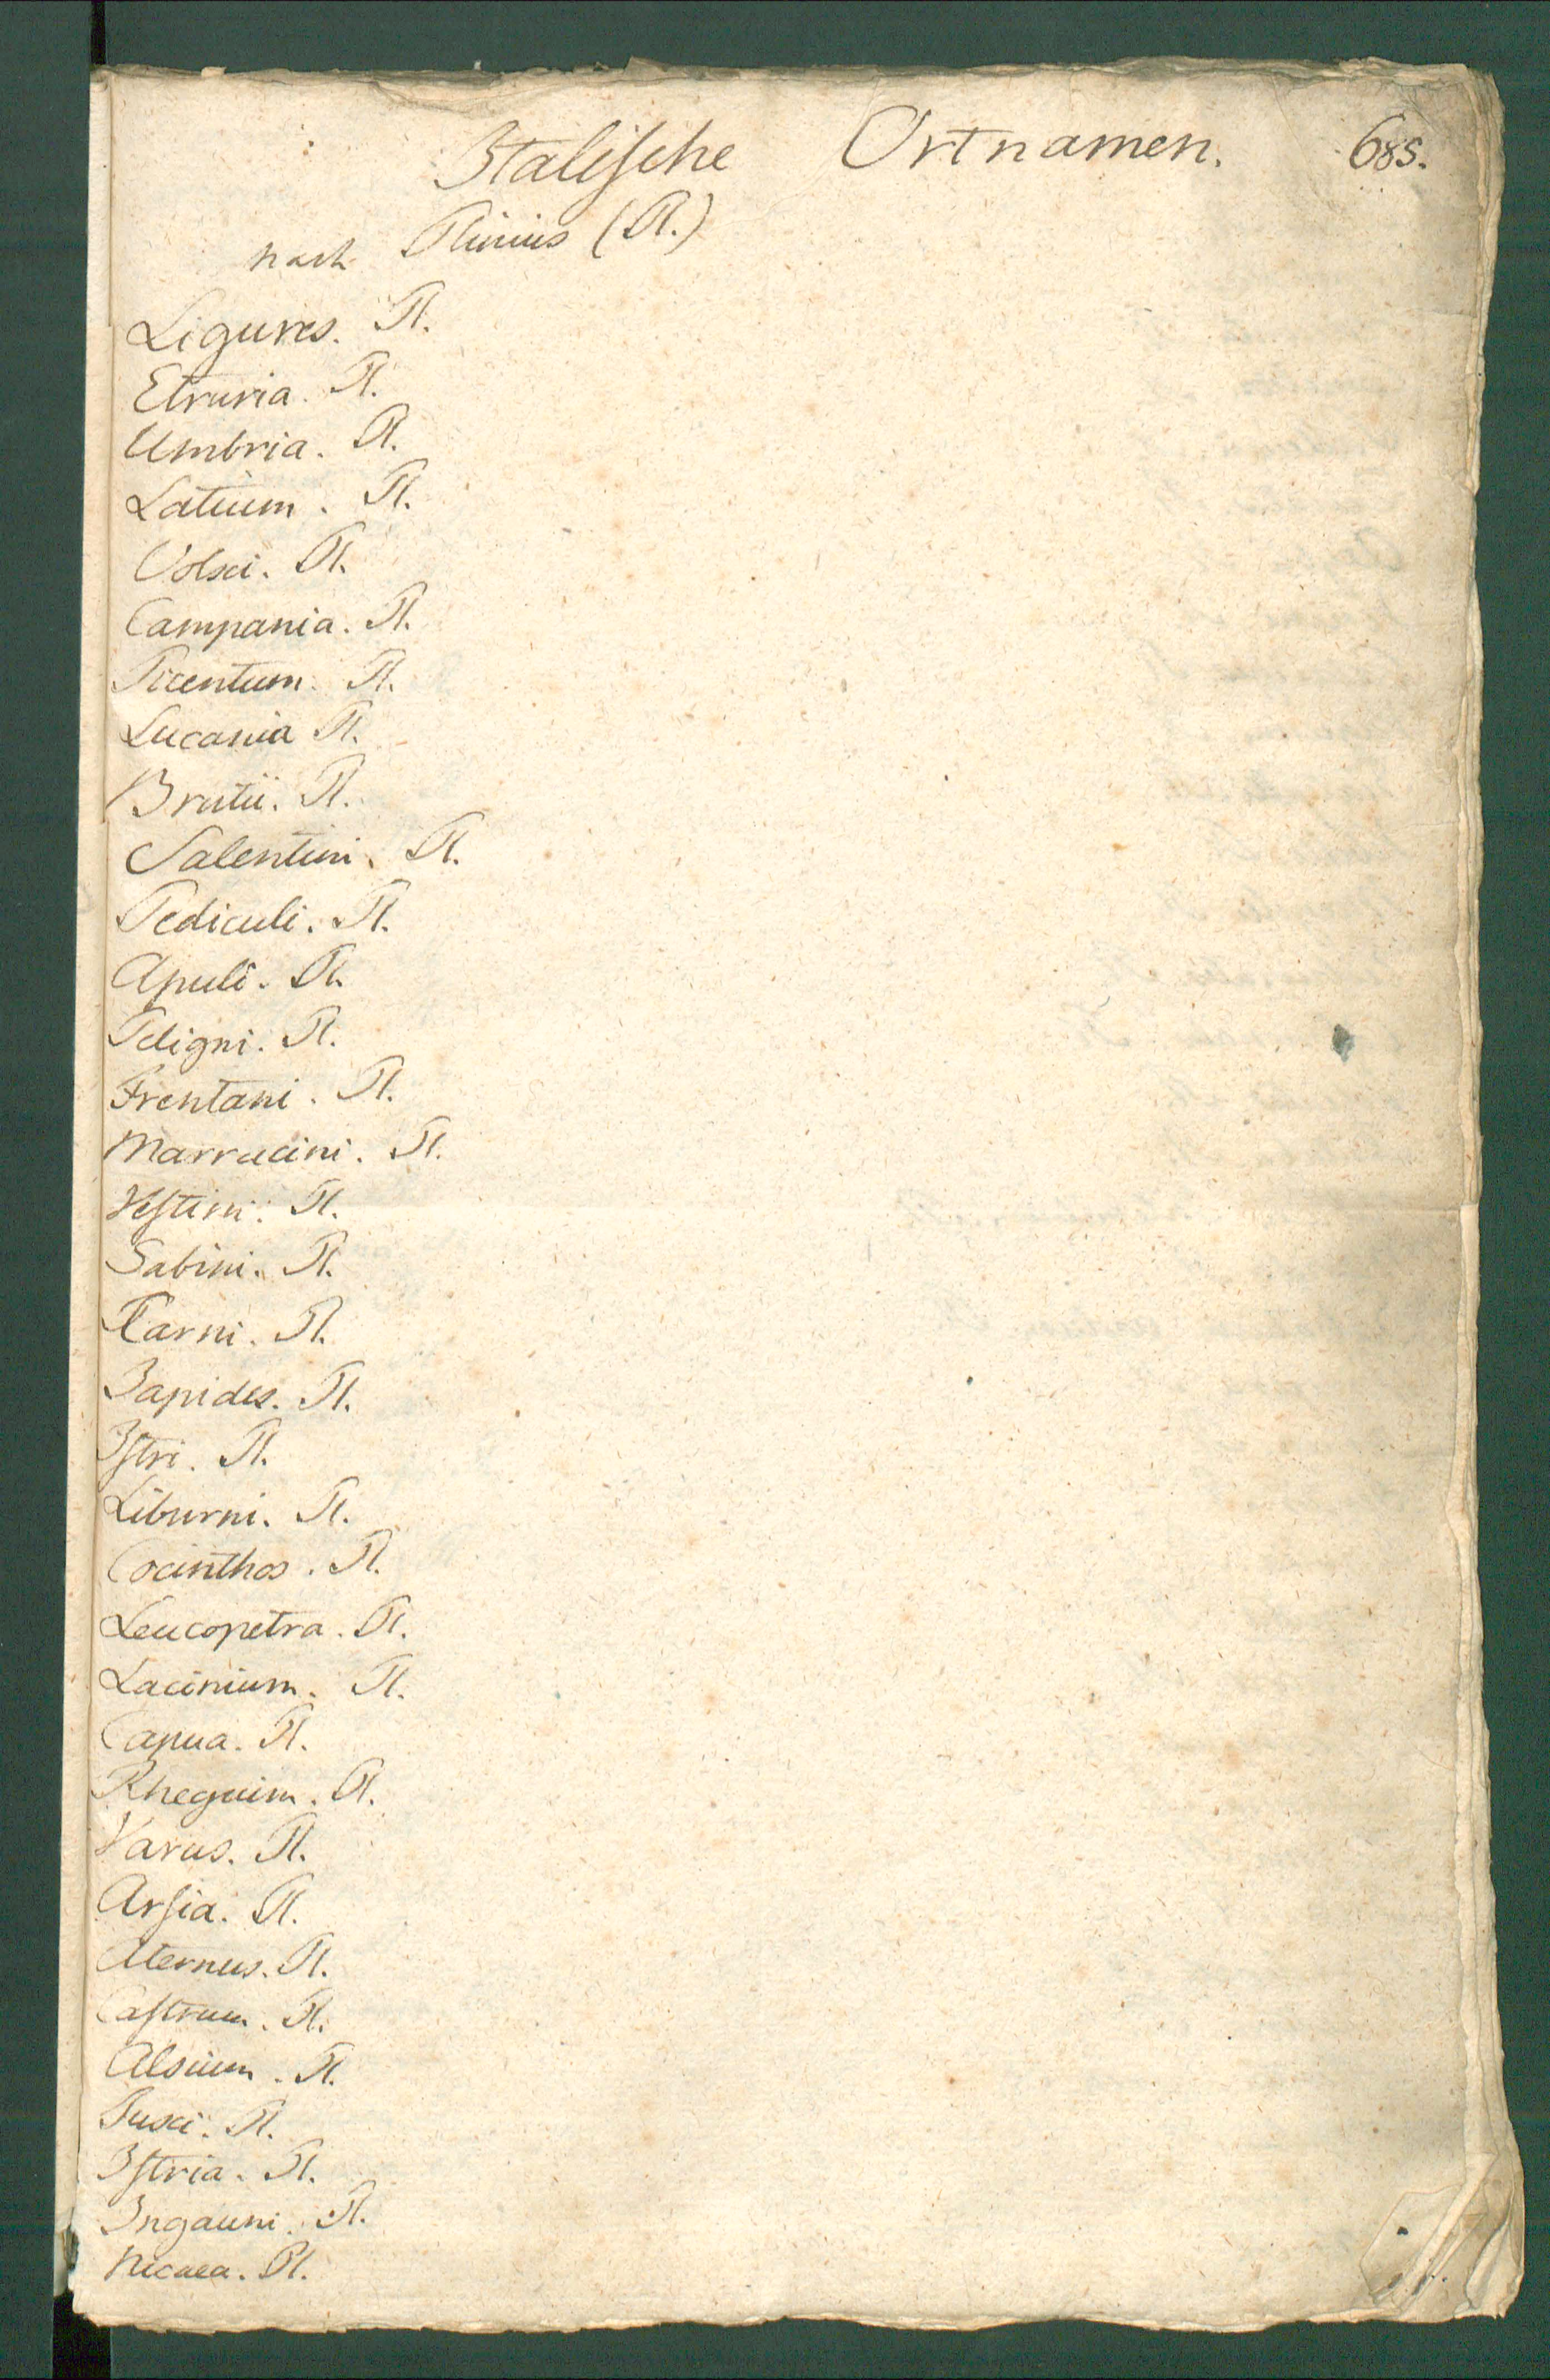 Italische Ortnamen. 685.
nach Plinius (Pl.)
Ligures. Pl.
Etruria. Pl.
Umbria. Pl.
Latium. Pl.
Volsci. Pl.
Campania. Pl.
Picentum. Pl.
Lucania Pl.
Brutii. Pl.
Salentini. Pl.
Pediculi. Pl.
Apuli. Pl.
Peligni. Pl.
Frentani. Pl.
Marrucini. Pl.
Vestini. Pl.
Sabini. Pl.
Carni. Pl.
Iapides. Pl.
Istri. Pl.
Liburni. Pl.
Cocinthos. Pl.
Leucopetra. Pl.
Lacinium. Pl.
Capua. Pl.
Rhegium. Pl.
Varus. Pl.
Arsia. Pl.
Aternus. Pl.
Castrum. Pl.
Alsium. Pl.
Tusci. Pl.
Istria. Pl.
Ingauni. Pl.
Nicaea. Pl.